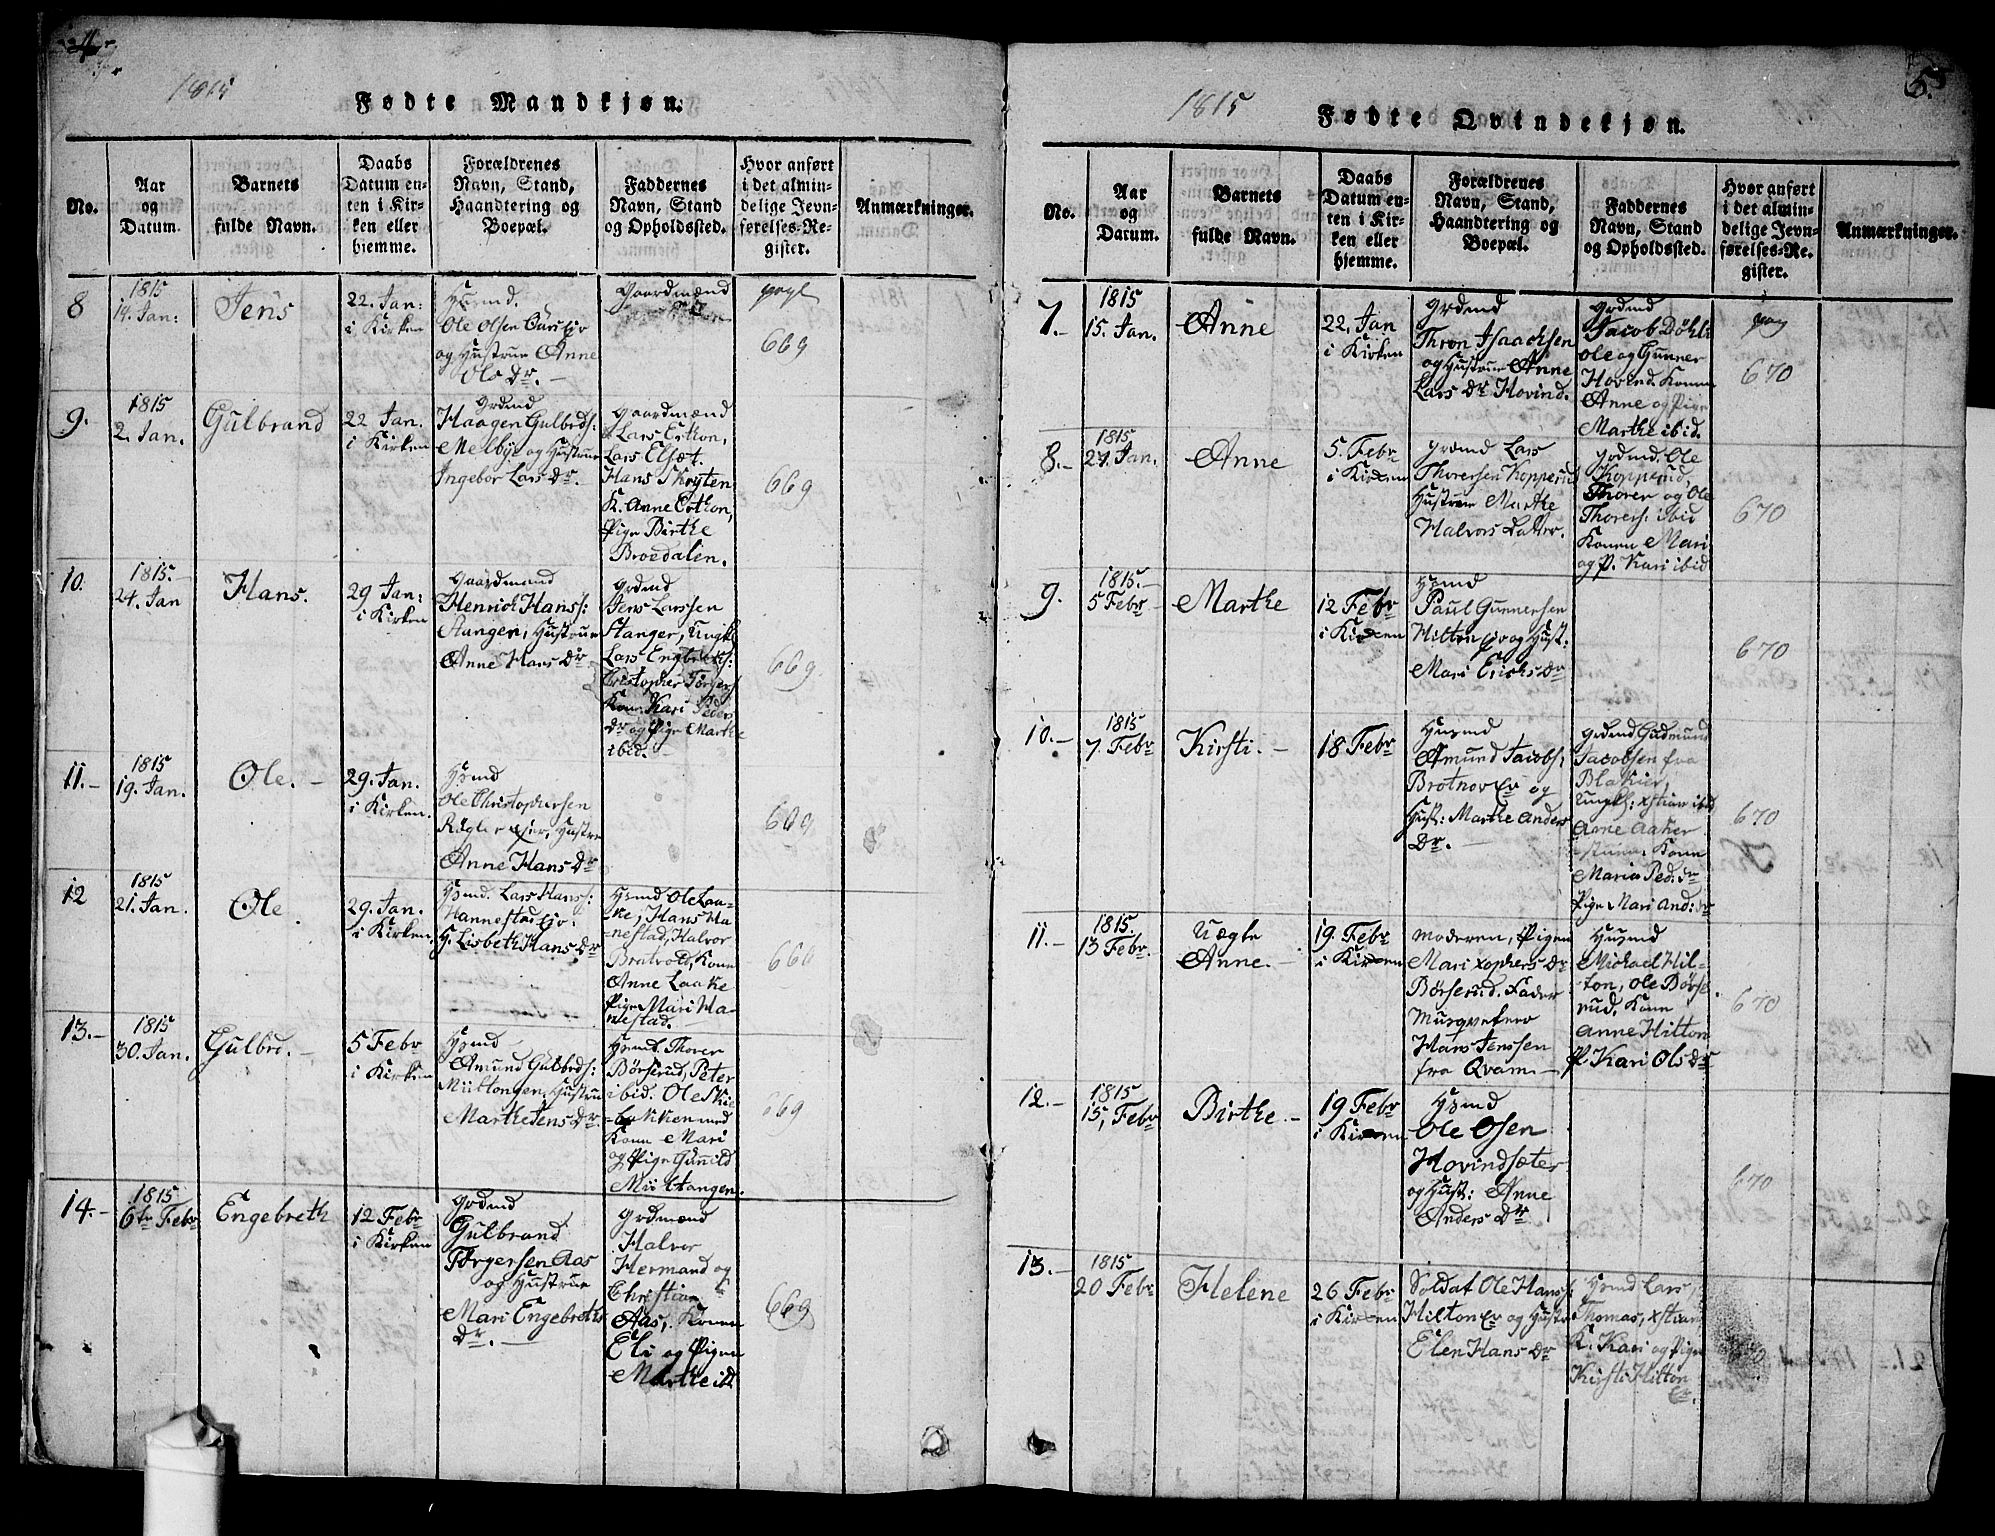 4
1815
Fødte Mandkjøn.
No.
Aar
og
Datum.
Barnets
fulde Navn.
Daabs
Datum en-
ten i Kir-
ken eller
hjemme.
Forældrenes
Navn, Stand,
Haandtering og
Boepæl.
Faddernes
Navn, Stand
og Opholdssted.
Hvor anført
i det almin-
delige Jevn-
førelses-Re-
gister.
Anmærkninger.
8
1815
14. Jan:
Jens
22. Jan:
i Kirken
Hsmd.
Ole Olsen
og Hustrue Anne
Ols Dr.
Gaardmænd
669
9.
1815
2. Jan.
Gulbrand
22 Jan.
i Kirken
Grdmd
Haagen Gulbrds:
Melbye og Hustrue
Ingebor Lars Dr.
Gaardmænd
Lars Eskon,
Lars Elsæt.
Hans Skryten
K. Anne Eskon,
Pige Birthe
Broedalen.
669
10.
1815.
24. Jan
Hans.
29 Jan:
i Kirken
Gaardmand
Henrich Hans:
Aangen, Hustrue
Anne Hans Dr
Grdmd
Jens Larssen
Stanger, Ungk.
Lars Engbreths:
Christopher Törgers
Konn Kari Peders
Dr og Pige Marthe
ibid.
669
11.-
1815
19. Jan.
Ole.
29. Jan.
i Kirken.
Hsmd
Ole Christophersen
Hustrue
Anne Hans Dr
669
12
1815
21. Jan.
Ole
29. Jan.
i Kirken.
Hsmd. Lars Hans:
Hannestad
H. Lisbeth Hans Dr
Hsmd Ole Laa-
ke, Hans Ha-
nestad, Halvor
Bratvold, Konn
Anne Laake
Pige Mari Ha-
nestad.
669
13.-
1815
30. Jan.
Gulbr.
5 Febr
i Kirken
Hsmd
Amund Gulbrds:
Hustrue
Marthe Jens Dr.
Hsmd. Thorer
Börserud, Peter
ibid. Ole Skie-
bakken med
Konn Mari
og Pige Gunild
Miiltangen.
669
14.-
1815
6te Febr
Engebreth
12 Febr
i Kirken
Grdmd
Gulbrand
Törgersen Aas
og Hustrue
Mari Engebreths
Dr.
Grdmænd
Halvor
Hermand og
Christian
Aas, Konen
Eli og Pigen
Marthe ibd
669
5.
1815
Fødte Qvindekjøn.
No.
Aar
og
Datum.
Barnets
fulde Navn.
Daabs
Datum en-
ten i Kir-
ken eller
hjemme.
Forældrenes
Navn, Stand,
Haandtering og
Boepæl.
Faddernes
Navn, Stand
og Opholdssted.
Hvor anført
i det almin-
delige Jevn-
førelses-Re-
gister.
Anmærkninger.
7.-
1815
15. Jan.
Anne
22. Jan
i Kirken
Grdmd
Thron Isaachsen
og Hustrue Anne
Lars Dr Hovind.
Grdmd
Jacob Döhl:
Ole og Gunner
Hovind. Konen
Anne og Pige
Marthe ibid.
pag
670
8.-
1815
27. Jan.
Anne
5. Febr
i Kirken
Grdmd Lars
Thorersen Kopperud
Hustrue Marthe
Halvors Datter.
Grdmd. Ole
Kopperud,
Thorer og Ole
Thorers: ibid
Konen Mari
og P. Kari ibid
670
9.
1815.
5 Febr
Marthe
12 Febr
i Kirken
Hsmd
Paul Gunnersen
Hilton og Hust:
Mari Erichs Dr
670
10.-
1815
7 Febr
Kirsti.
18 Febr
Husmd
Amund Jacobs:
Brotnov Er og
Hust: Marthe Anders
Dr.
Grdmd Gudmund
Jacobsen fra
Blakier,
Ungk: Xstian ibid
Arne Aaker
Konn
Maria Ped: Dr
Pige Mari And: Dr
670
11.-
1815.
13 Febr.
Uægte
Anne.
19. Febr
i Kirken
Moderen, Pigen
Mari Xophers Dr
Börserud. Fader
Musqveteer
Hans Jenssen
fra Qvam.
Husmd
Michael Hil-
ton, Ole Börse-
rud. Konn
Anne Hilton
P. Kari Ols Dr
670
12.-
1815
15, Febr
Birthe.
19 Febr
i Kirken
Hsmd
Ole Olsen
Hovindsæter
og Hust: Anne
Anders Dr
670
13.-
1815
20 Febr
Helene
26 Febr
i Kirken
Soldat Ole Hans:
Hilton Er og Hustr
Elen Hans Dr
Hsmd Lars,
Thomas, Xstian
K. Kari og Pige
Kirsti Hilton
Er.
670